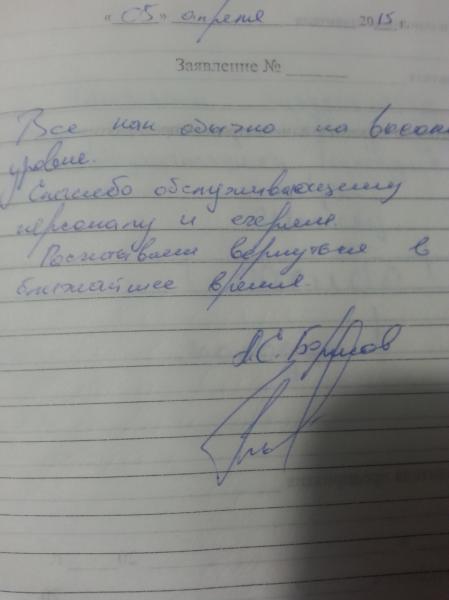 « 05 » апреля 2015 г.
Заявление №
Все как обычно на высоком
уровне.
Спасибо обслуживающему
персоналу и
Рассчитываем вернуться в
ближайшее время.